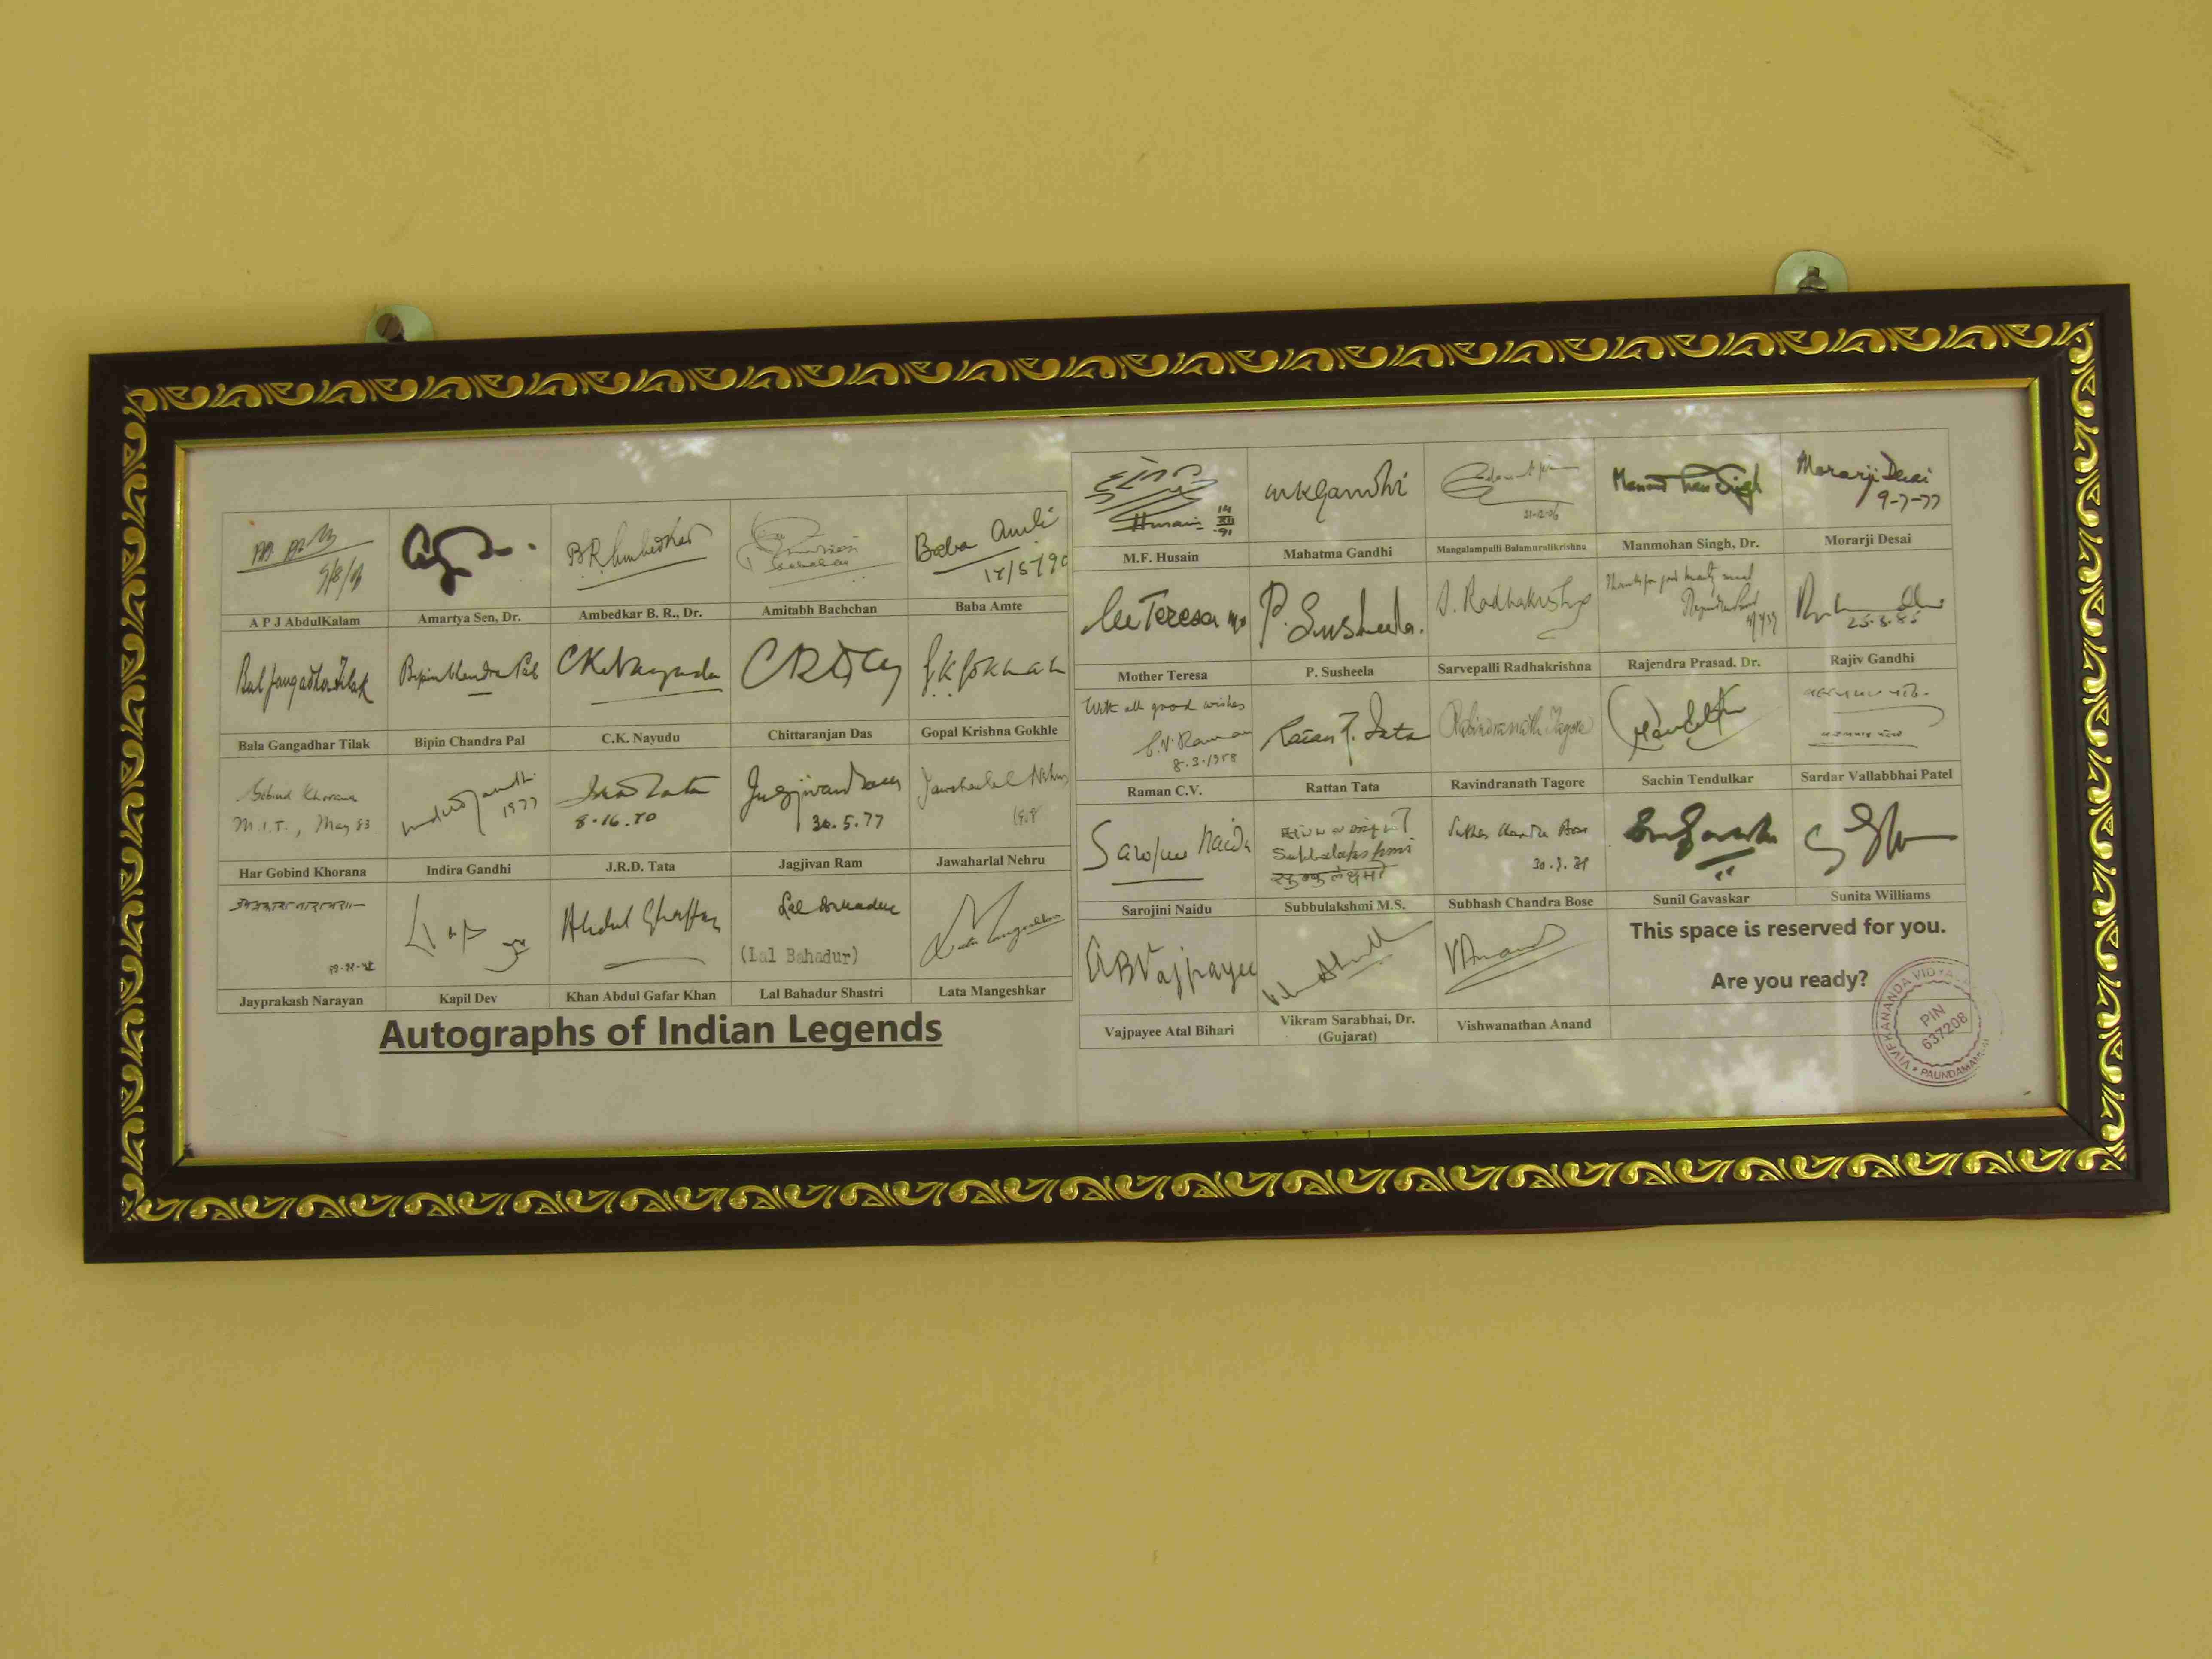 9/8/03
BRAmbedkar
Baba Amte
17/5/90
A P J AbdulKalam
Amartya Sen, Dr.
Ambedkar B. R., Dr.
Amitabh Bachchan
Baba Amte
Bal Gangadhar Tilak
Bipin Chandra Pal
CKNayudu
CRDas
GKGokhale
Bala Gangadhar Tilak
Bipin Chandra Pal
C.K. Nayudu
Chittaranjan Das
Gopal Krishna Gokhle
Gobind Khorana
M.I.T., May 83
1977
8.16.70
Jagjivan Ram
30.5.77
Jawaharlal Nehru
Har Gobind Khorana
Indira Gandhi
J.R.D. Tata
Jagjivan Ram
Jawaharlal Nehru
Abdul Ghaffar
Lal Bahadur
(Lal Bahadur)
Lata Mangeshkar
Jayprakash Narayan
Kapil Dev
Khan Abdul Gafar Khan
Lal Bahadur Shastri
Lata Mangeshkar
Autographs of Indian Legends
Husain
14
XII
91
mkgandhi
21-12-06
Manmohan Singh
Morarji Desai
9-7-77
M.F. Husain
Mahatma Gandhi
Mangalampalli Balamuralikrishna
Manmohan Singh, Dr.
Morarji Desai
lee Teresa mc
P. Susheela.
S. Radhakrishnan
25.3.85
Mother Teresa
P. Susheela
Sarvepalli Radhakrishna
Rajendra Prasad, Dr.
Rajiv Gandhi
With all good wishes
C.V. Raman
8.3.1958
Ratan N. Tata
Rabindranath Tagore
Raman C.V.
Rattan Tata
Ravindranath Tagore
Sachin Tendulkar
Sardar Vallabbhai Patel
Sarojini Naidu
Subbulakshmi
सुब्बुलक्ष्मी
Subhas Chandra Bose
Sarojini Naidu
Subbulakshmi M.S.
Subhash Chandra Bose
Sunil Gavaskar
Sunita Williams
ABVajpayee
VAnand
This space is reserved for you.
Are you ready?
Vajpayee Atal Bihari
Vikram Sarabhai, Dr.
(Gujarat)
Vishwanathan Anand
VIVEKANANDA VIDYA
PIN
637208
PAUNDAMAN